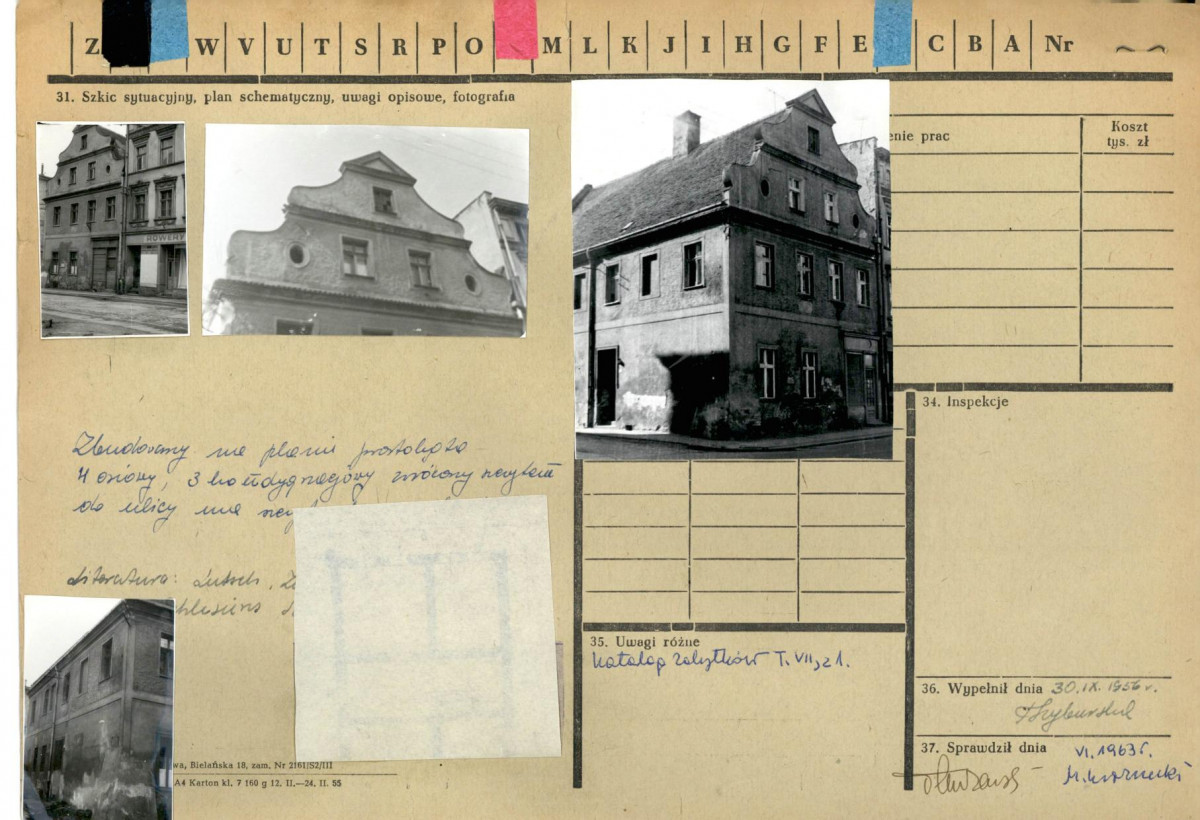 Z W V U T S R P O M L K J I H G F E C B A Nr
31. Szkic sytuacyjny, plan schematyczny, uwagi opisowe, fotografia
ROWERY
enie prac
Koszt
tys. zł
Zbudowany na planie prostokąta
4 osiowy, 3 kondygnacjowy zwrócony szczytem
do ulicy ma
Literatura: Lutsch,
34. Inspekcje
35. Uwagi różne
Katalog zabytków T. VII, z 1.
36. Wypełnił dnia 30.IX.1956 r.
37. Sprawdził dnia VI.1963 r.
wa, Bielańska 18, zam. Nr 2161/52/III
A4 Karton kl. 7 160 g 12. II.—24. II. 55